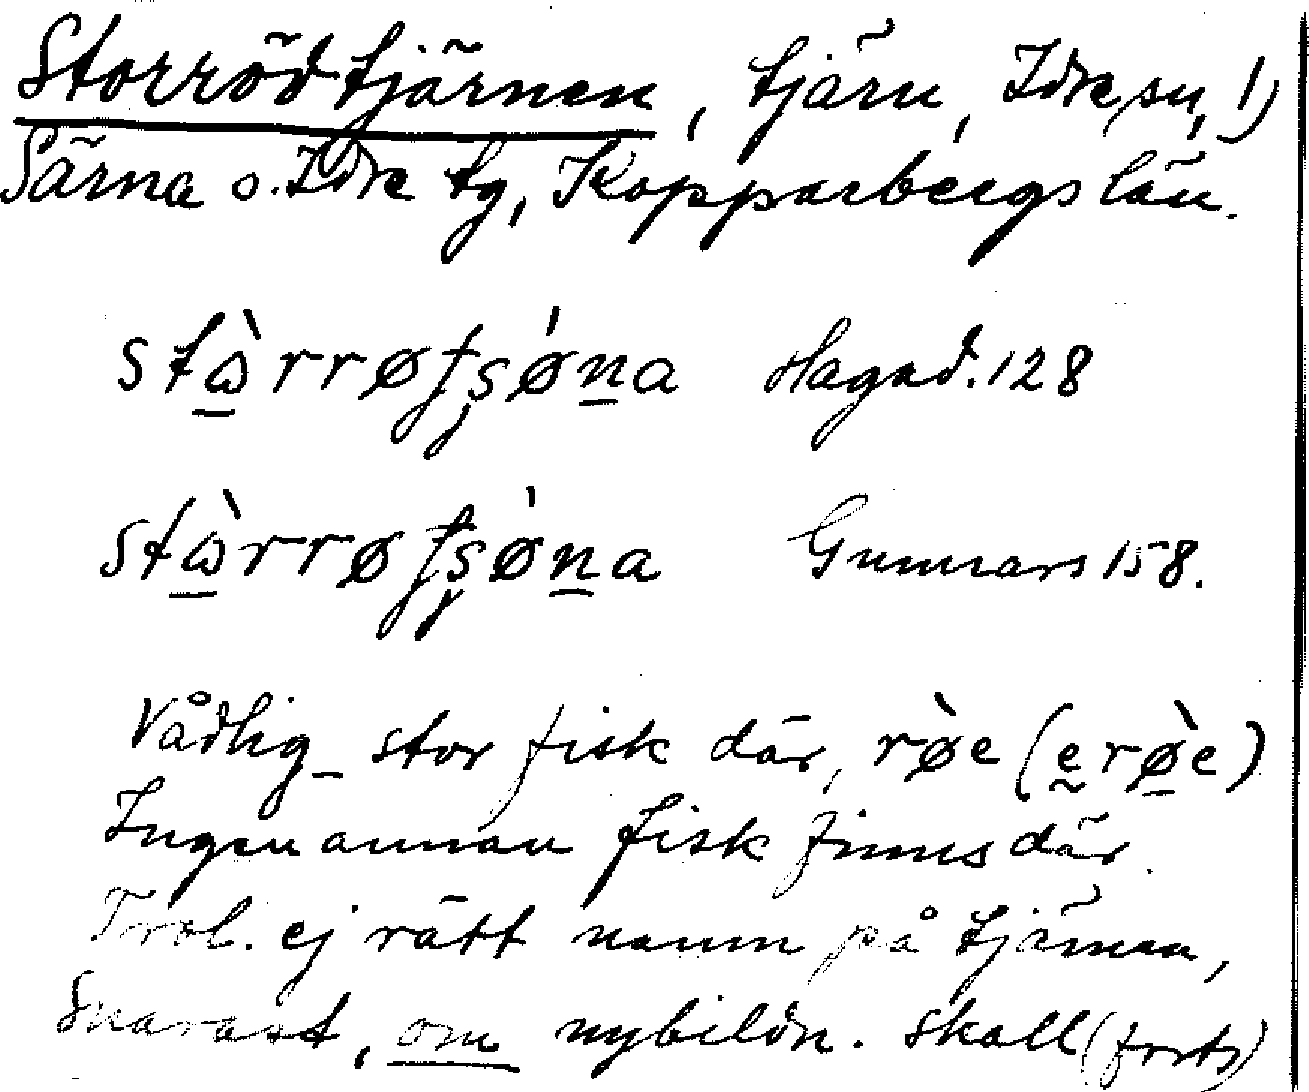 Storrödtjärnen, tjärn, Idre sn, 1)
Särna o. Idre tg, Kopparbergs län.
stὼ̠rrøtʂǿn̠a Hagad. 128
stὼ̠rrøtʂǿn̠a Gunnars 158.
Vådlig stor fisk där, rø̀e (ḛ rø̠̀e)
Ingen annan fisk finns där.
Trol. ej rätt namn på tjärnen,
Snarast, om nybildn. skall (forts)